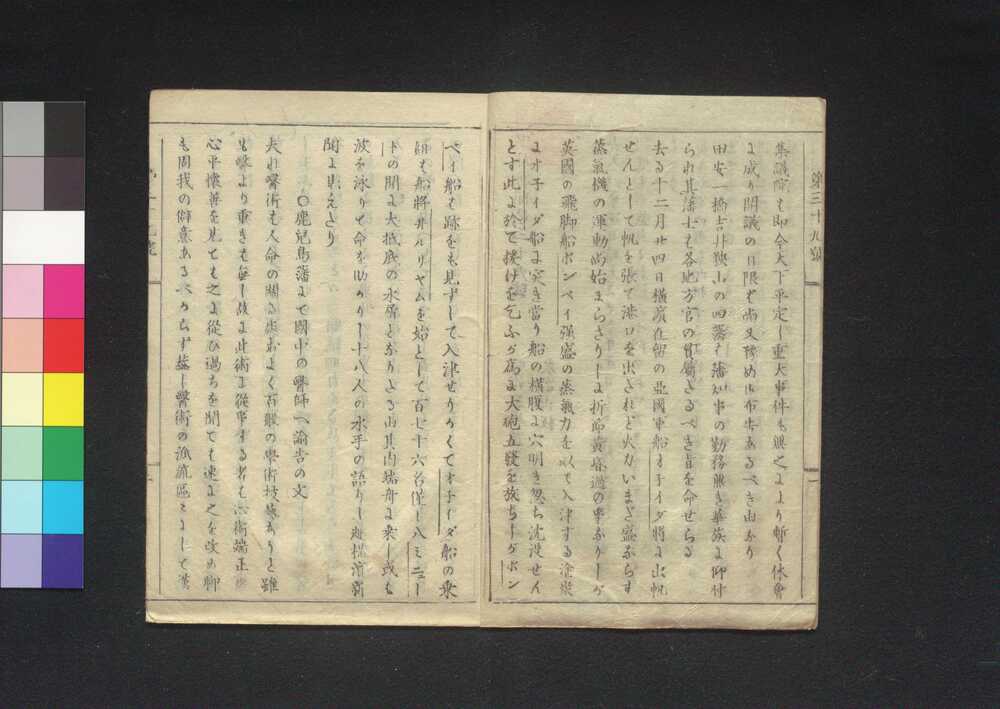 第三十九號
集議院も即今天下平定し重大事件も無之より暫く休會
に成り開議の日限は尚又豫め御布告あるべき由なり
田安一橋吉井狹山の四藩は藩知事の勤務無き華族に仰付
られ其藩士も各地方官の貫屬たるべき旨を命せらる
去る十二月廿四日横濱在留の亞國軍船ヲ子イダ將に出帆
せんとして帆を張て港口を出されど火力いまだ盛ならず
蒸氣機の運動尚始まらざりしに折節黄昏過の事なりしが
英國の飛脚船ボンベイ强盛の蒸氣力を以て入津する途從
ヲ子イダ船に突き當り船の横腹に穴明き忽ち沈没せん
とす此に於て援けを乞ふが爲に大砲五發を放ちしがボン
ベイ船は跡をも見ずして入津せりかくてヲ子イダ船の乘
組は船將井ルリヤムを始として百七十六名僅に八ミニュー
トの間に大抵底の水屑となりたる由其内端舟に乘し或は
波を泳りて命を助かりし十八人の水手の語りし趣横濱新
聞に見えたり
○鹿兒島藩にて國中の醫師へ諭告の文
夫れ醫術も人命の關る所およく百般の學術技藝ありと雖
も醫より重きも無し故に此術に從事する者も心術端正
心平懷善を見ても之に從ひ過ちを聞ても速に之を改め聊
も固我の僻意あるべからず 醫術の流區